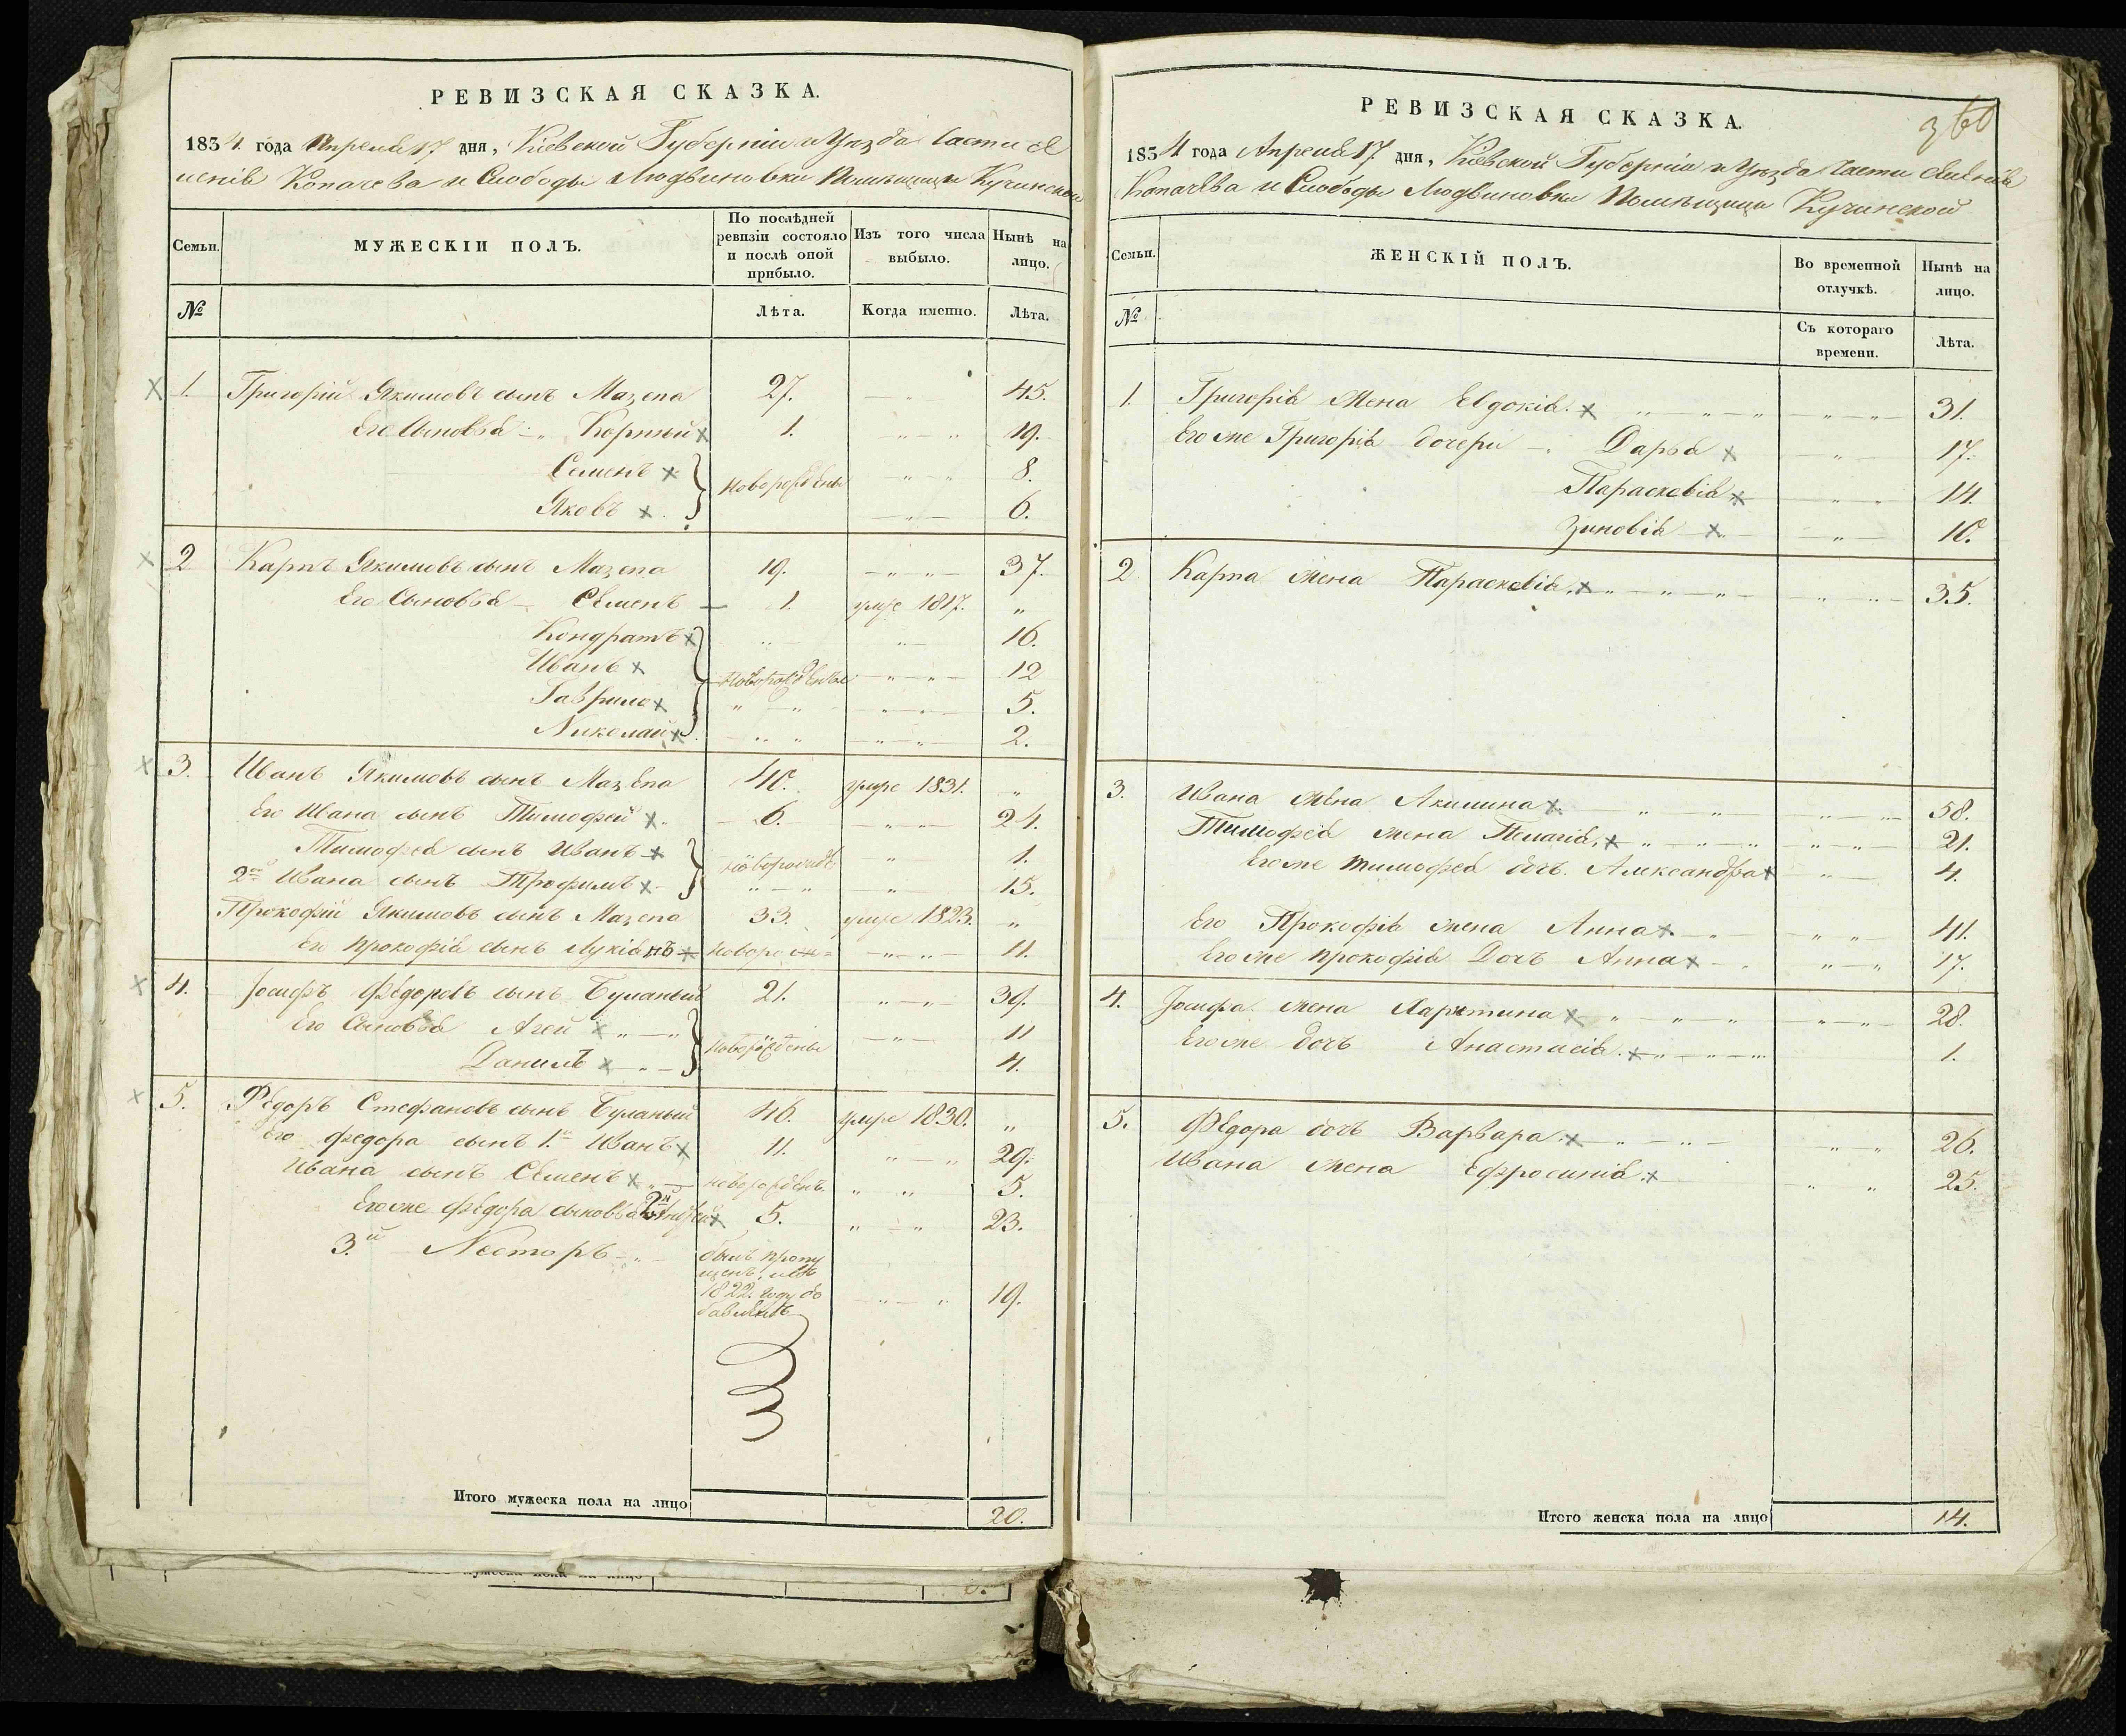 РЕВИЗСКАЯ СКАЗКА.
1834. года Апреля 17. дня, Кіевской Губерніи и Уѣзда Части се
ленія Копачева и Слободы Людвиновки Помѣщицы Кучинской
Семьи.
МУЖЕСКІИ ПОЛЪ.
По послѣдней ревизіи состояло и послѣ оной прибыло.
Изъ того числа выбыло.
Нынѣ на лицо.
№
Лѣта.
Когда именно.
Лѣта.
1. Григорій Якимовъ сынъ Мазепа 27. 45.
Его Сыновья Корній 1. 19.
Семенъ новорожденны 8.
Яковъ 6.
2 Карпъ Якимовъ сынъ Мазепа 19. 37.
Его Сыновья Семенъ 1. умре 1817. "
Кондратъ 16.
Иванъ новорожденные 12
Гаврило 5.
Николай 2.
3. Иванъ Якимовъ сынъ Мазепа 40. умре 1831. "
Его Ивана сынъ Тимофей 6. 24.
Тимофея сынъ Иванъ новорожде 1.
2й Ивана сынъ Трофимъ 15.
Прокофій Якимовъ сынъ Мазепа 33. умре 1823. "
Его прокофія сынъ Лукіянъ новорож= 11.
4. Іосифъ Федоровъ сынъ Буланый 21. 39.
Его Сыновья Агей новорожденны 11
Данилъ 4.
5. Федоръ Стефановъ сынъ Буланый 46. умре 1830. "
Его федора сынъ 1.й Иванъ 11. 29.
Ивана сынъ Семенъ новорожденъ. 5.
Его же федора сыновья 2й Андрей 5. 23.
3.й Несторъ былъ пропу
щенъ, и въ
1822. году до
бавленъ 19.
Итого мужеска пола на лицо 20.
РЕВИЗСКАЯ СКАЗКА.
360
1834 года Апреля 17 дня, Кіевской Губерніи и Уѣзда Части селенія
Копачева и Слободы Людвиновки Помѣщицы Кучинской
Семьи.
ЖЕНСКІЙ ПОЛЪ.
Во временной отлучкѣ.
Нынѣ на лицо.
№
Съ котораго времени.
Лѣта.
1. Григорія Жена Евдокія. 31.
Его же Григорія дочери Дарья 17.
Параскевія 14.
Зиновія 10.
2. Карпа жена Параскевія. 35.
3. Ивана жена Акилина 58.
Тимофея жена Пелагія, 21.
Его же тимофея дочь. Александра 4.
Его Прокофія жена Анна 41.
Его же прокофія Дочь Анна 17.
4. Іосифа жена 28.
Его же дочь Анастасія. 1.
5. Федора дочь Варвара. 26.
Ивана жена Ефросинія. 25.
Итого женска пола на лицо 14.